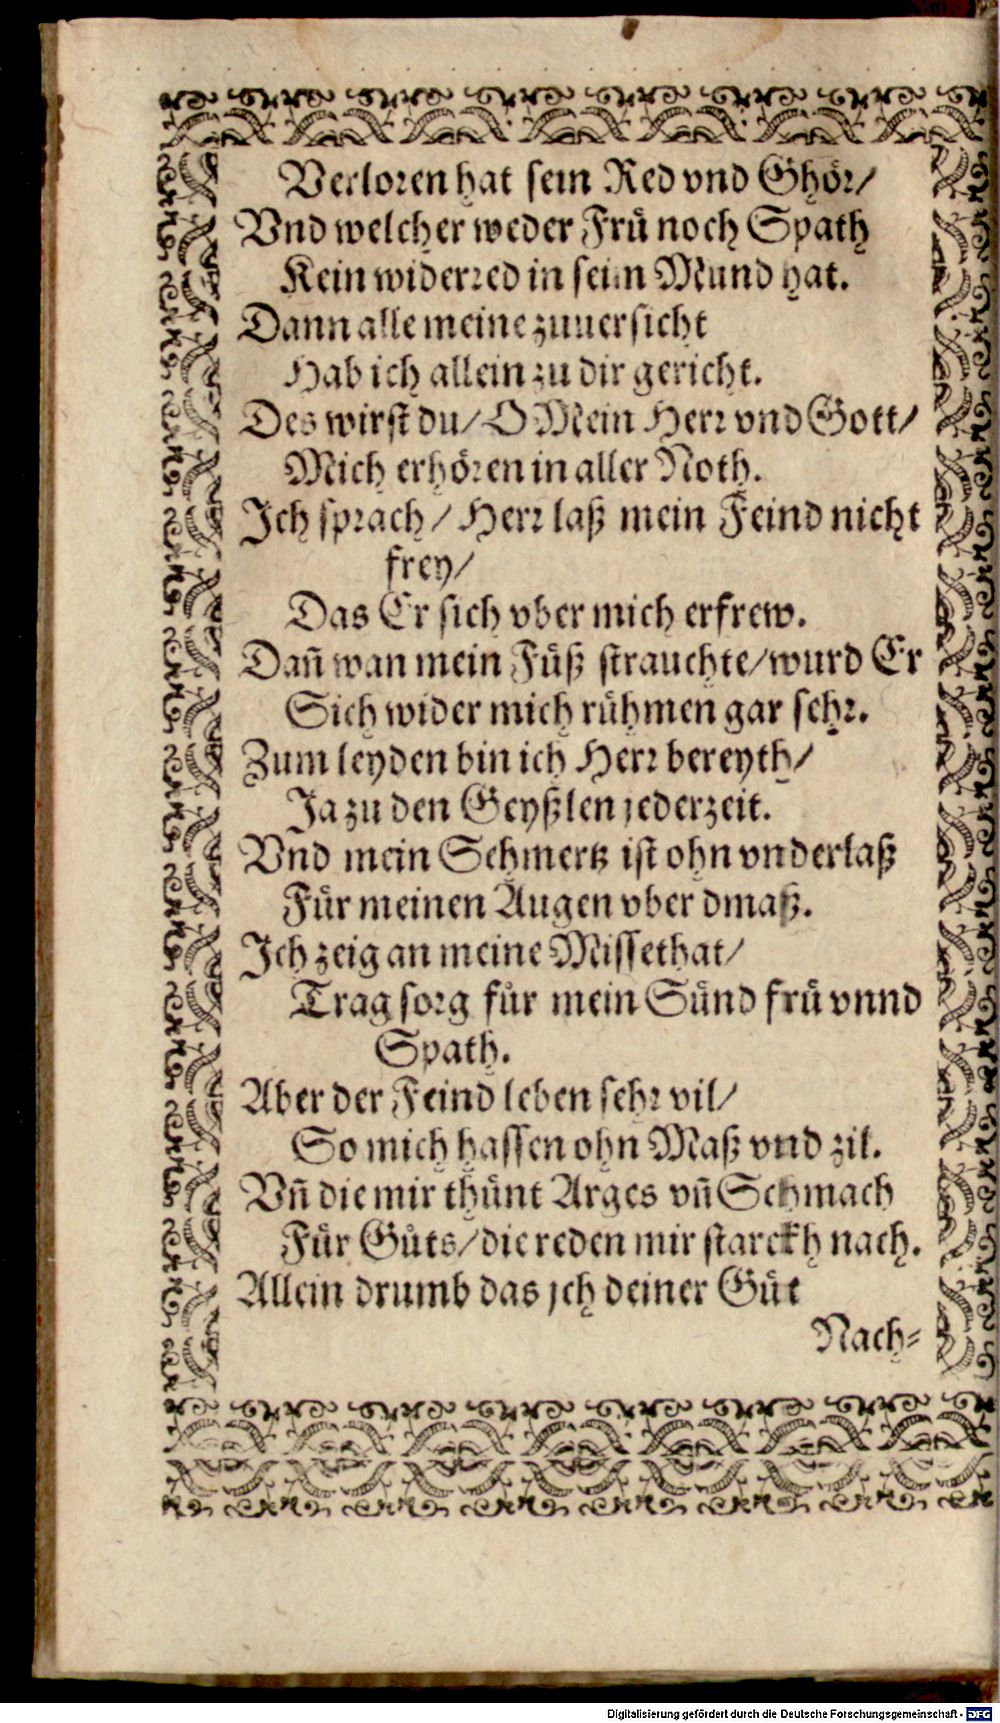 Verloren hat sein Red vnd Ghör/
Vnd welcher weder Frü noch Spath
Kein widerred in seim Mund hat.
Dann alle meine zuuersicht
Hab ich allein zu dir gericht.
Des wirst du/ O Mein Herr vnd Gott/
Mich erhören in aller Noth.
Ich sprach/ Herr laß mein Feind nicht
frey/
Das Er sich vber mich erfrew.
Dañ wan mein Füß strauchte/ wurd Er
Sich wider mich rühmen gar sehr.
Zum leyden bin ich Herr bereyth/
Ja zu den Geyßlen jederzeit.
Vnd mein Schmertz ist ohn vnderlaß
Für meinen Augen vber dmaß.
Ich zeig an meine Missethat/
Trag sorg für mein Sünd frü vnnd
Spath.
Aber der Feind leben sehr vil/
So mich hassen ohn Maß vnd zil.
Vñ die mir thünt Arges vñ Schmach
Für Güts/ die reden mir starckh nach.
Allein drumb das jch deiner Güt
Nach⸗
Digitalisierung gefördert durch die Deutsche Forschungsgemeinschaft - DFG